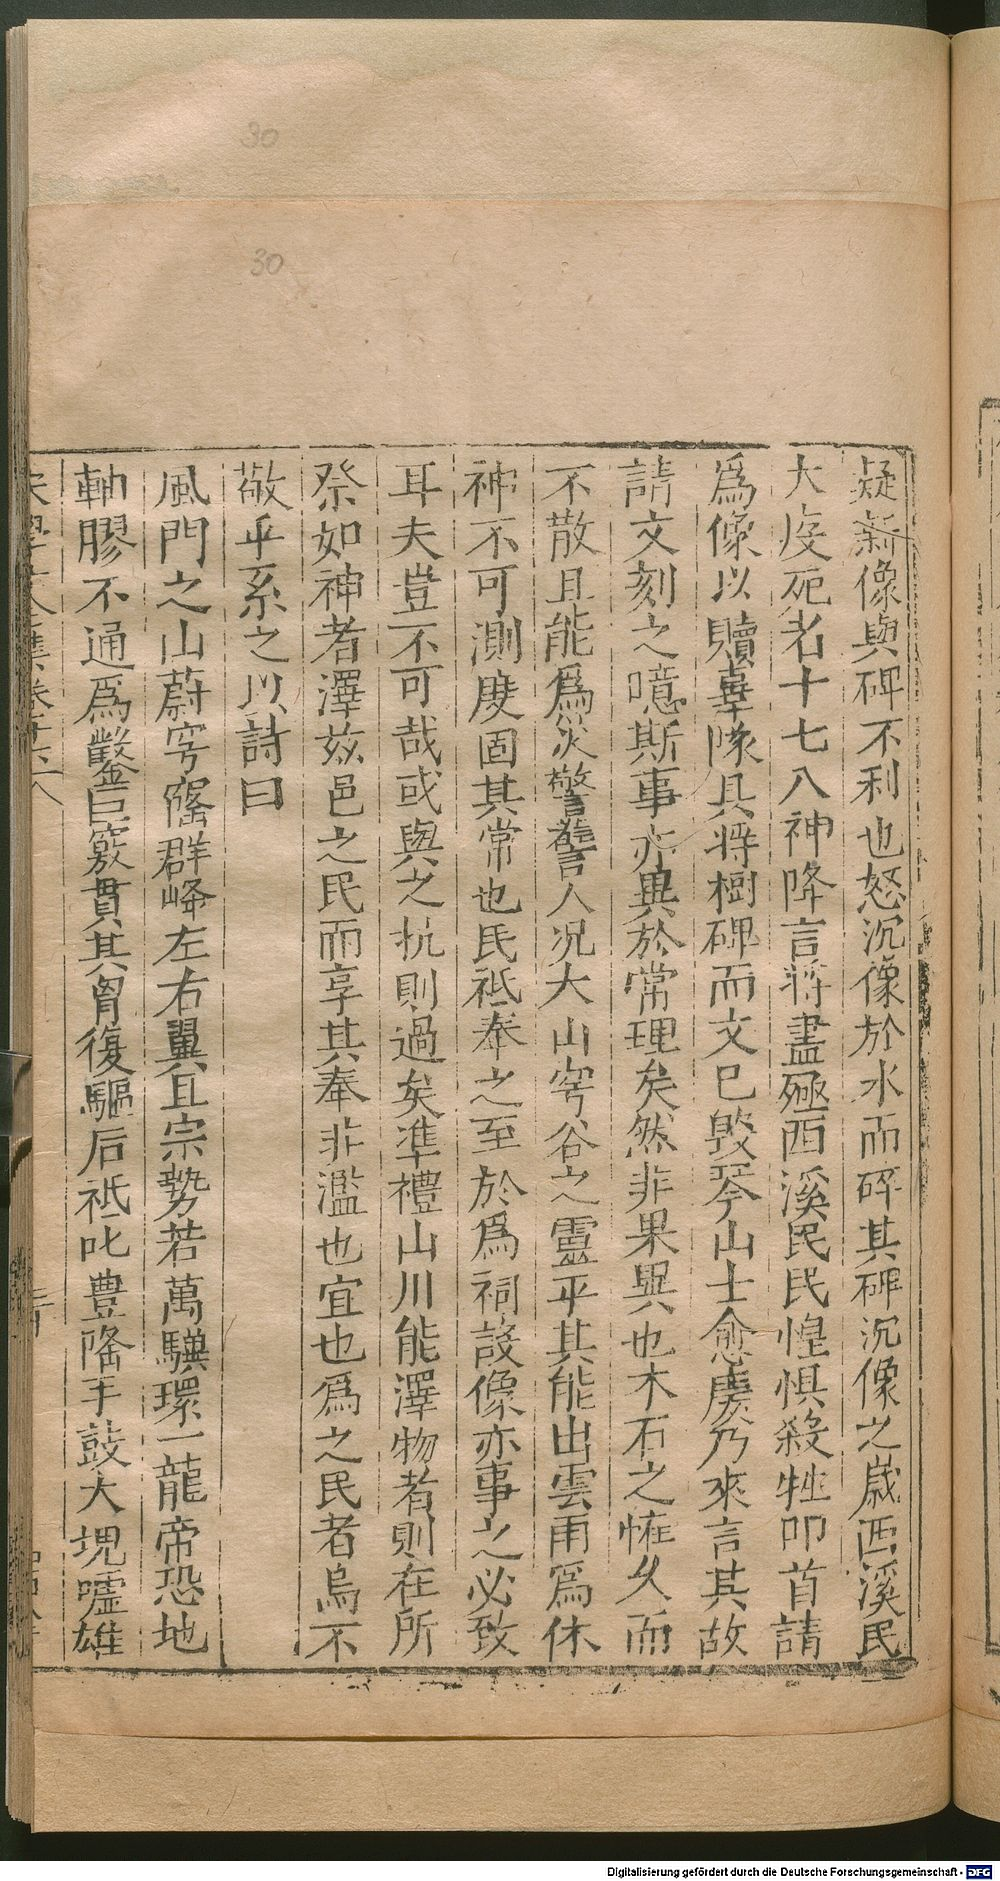 30
30
疑新像與碑不利也怒沉像於水而碎其碑沉像之歳西溪民
大疫死者十七八神降言将盡殛西溪民民惶惧殺牲叩首請
爲像以贖辜隊具将樹碑而文已毁琴山士愈虔乃來言其故
請文刻之噫斯事亦異於常理矣然非果異也木石之恠久而
不散且能爲災警讋人况大山穹谷之靈乎其能出雲雨爲休
神不可測度固其常也民祗奉之至於爲祠設像亦事之必致
耳夫豈不可哉或與之抗則過矣凖禮山川能澤物者則在所
祭如神者澤兹邑之民而享其奉非濫也宜也爲之民者烏不
敬乎系之以詩曰
風門之山蔚穹窿群峰左右翼且宗勢若萬驥環一龍帝恐地
軸膠不通爲鑿巨竅貫其胷復驅后祗叱豊隆手鼓大塊噓雄
Digitalisierung gefördert durch die Deutsche Forschungsgemeinschaft - DFG